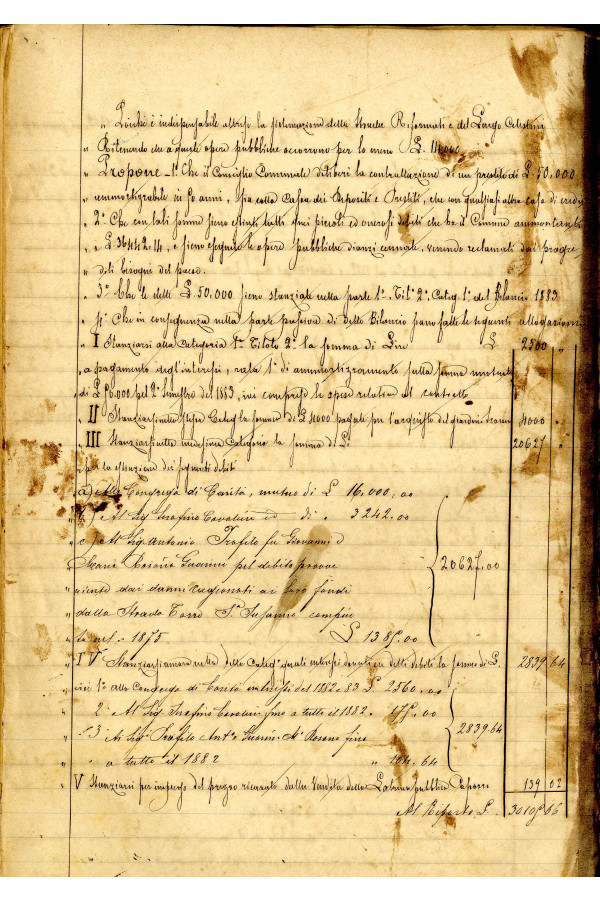 " Poichè è indispensabile altresì la sistemazione della Strada Riformati e del Largo Celestini
" Ritenendo che a queste opere pubbliche occorrono per lo meno L. 14000
" Propone - 1° Che il Consiglio Comunale deliberi la contrattazione di un prestito di L. 50.000
" ammortizzabile in 50 anni, sia colla Cassa dei Depositi e Prestiti, che con qualsiasi altra Cassa di credito
" 2° Che con tali somme sieno estinti tutti quei piccoli ed onerosi debiti che ha il Comune ammontanti
" a L. 36442.14, e sieno eseguite le opere pubbliche dianzi cennate, venendo reclamati dai progre
" diti bisogni del paese.
" 3° Che le dette L. 50.000 sieno stanziate nella parte 1ª Tit° 2° Categ. 1ª del Bilancio 1883
" 4° Che in conseguenza nella parte passiva di detto Bilancio siano fatte le seguenti allogazioni
" I Stanziarsi alla Categoria 1ª Titolo 2° la somma di Lire L. 2500 "
" a pagamento degl'interessi, rata 1ª di ammortizzamento sulla somma mutuata
" di L. 50.000 pel 2° semestre del 1883, ivi comprese le spese relative al contratto
" II Stanziarsi nella stessa Categ. la somma di L. 4000 pagate per l'acquisto del giardino 4000 "
" III Stanziarsi nella medesima Categoria la somma di L. 20627 "
" per la estinzione dei seguenti debiti
a) Alla Congrega di Carità, mutuo di L. 16.000,00
" b) Al Sig. Serafino Cavalieri id di " 3242.00
" c) Al Sig. Antonio Trofilo fu Giovanni e
" Maria Rosaria Guarini pel debito prove
" niente dai danni cagionati ai loro fondi
" dalla Strada Torre S. Susanna compiu
" ta nel 1875 L. 1385.00
20627.00
" IV Stanziarsi ancora nella detta Categ. quali interessi dovuti su detti debiti la somma di L. 2839.64
ivi 1° alla Congrega di Carità interessi del 1882-83 L. 2560.00
" 2° Al Sig. Serafino Cavalieri fino a tutto il 1882 " 175.00
" 3° Ai Sig. Trofilo Ant° Guarini Mª Rosaria fino
" a tutto il 1882 " 104.64
2839.64
" V Stanziarsi per impiego del prezzo ricavato dalla Vendita delle Latrine pubbliche 139 02
Al Riporto L. 30105 66